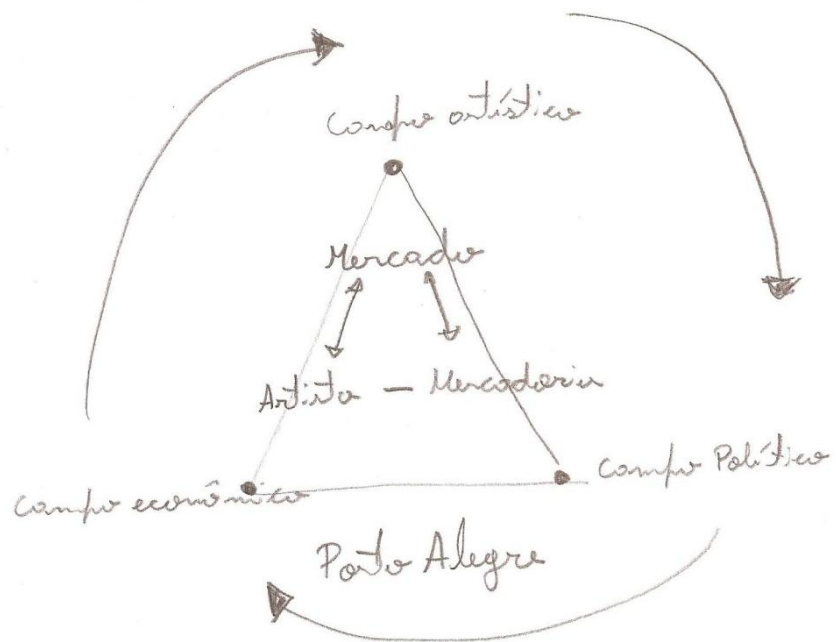 Campo artístico
Mercado
Artista – Mercadoria
Campo Político
Campo econômico
Porto Alegre